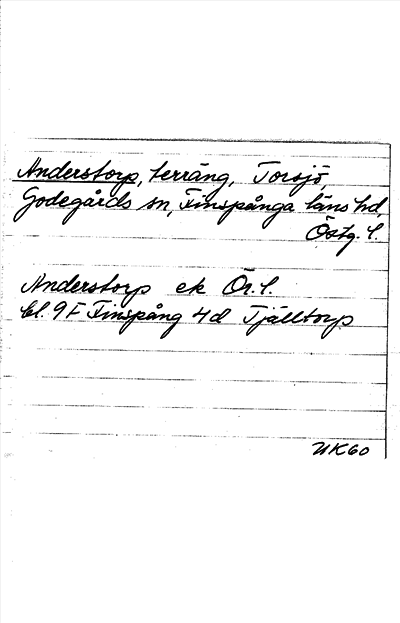 Anderstorp, terräng, Torsjö,
Godegårds sn, Finspånga läns hd,
Östg. l.
Anderstorp ek Ör. l.
bl. 9F Finspång 4d Tjälltorp
UK60